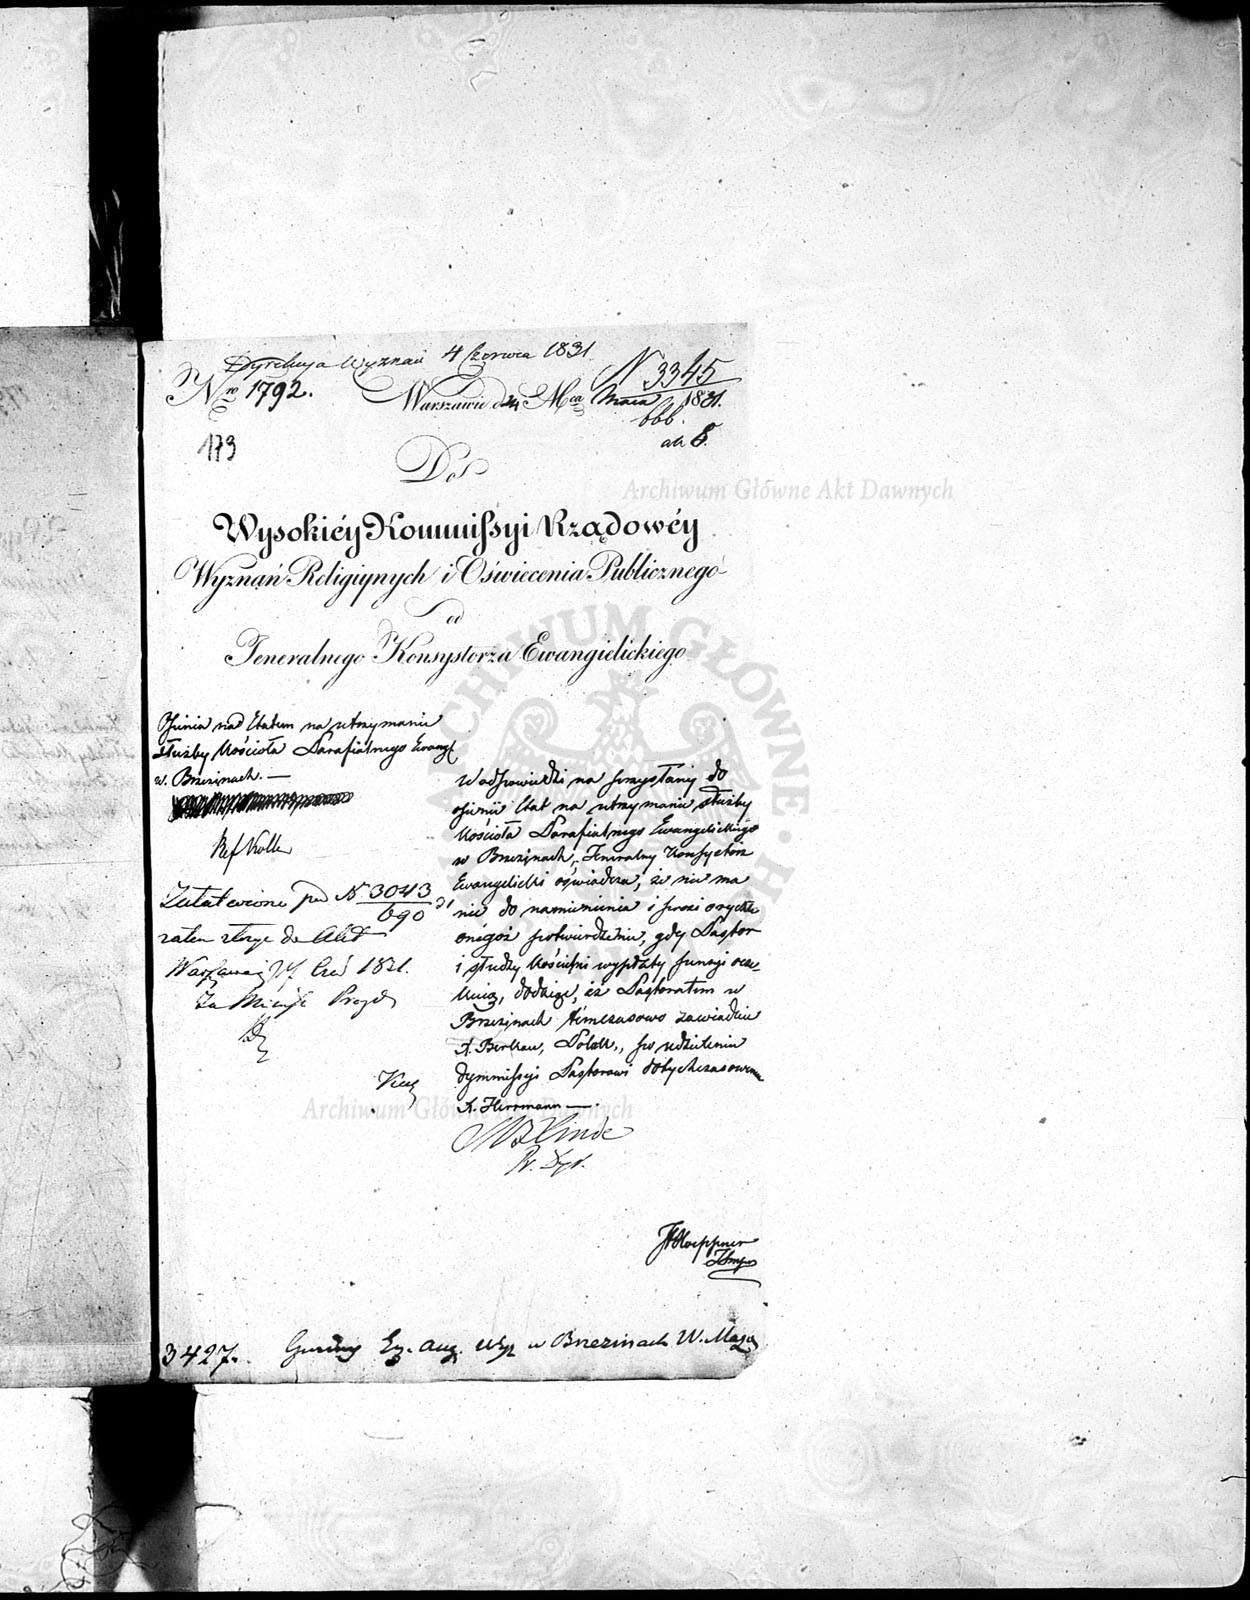 Dyrekcya Wyznań 4 Czerwca 1831
N 3345
Nro 1792.
Warszawie d 24 Mca Maia 1831.
bbb.
ab 8.
173
Do
Wysokiéy Kommissyi Rządowéy
Wyznań Religiynych i Oświecenia Publicznego
od
Jeneralnego Konsystorza Ewangielickiego
Opinia nad Etatem na utrzymanie
służby Kościoła Parafialnego Ewang
w. Brzezinach. —
Ref Kolle
Załatwiono pod N 3043
690
zatem złożyć do Akt
Warszawa
1831.
Za
W odpowiedzi na przysłany do
opinii Etat na utrzymanie służby
Kościoła Parafialnego Ewangelickiego
w Brzezinach, Jeneralny Konsystorz
Ewangelicki oświadcza, że nie ma
nic do namienienia i prosi o rychłe
onegoż potwierdzenie, gdy Pastor
i słudzy Kościelni wypłaty swojej ocze-
kują, dodając, iż Pastoratem w
Brzezinach tymczasowo zawiaduje
X. Berkau, po udzieleniu
dymmissyi Pastorowi dotychczasowemu
X. Herrmann —.
Linde
Pr. Dyr.
Hoeppner
3427.
Gminy Ew. Aug. Wyz w Brzezinach W. Maz
Archiwum Główne Akt Dawnych
ARCHIWUM GŁÓWNE
Archiwum Główne Akt Dawnych